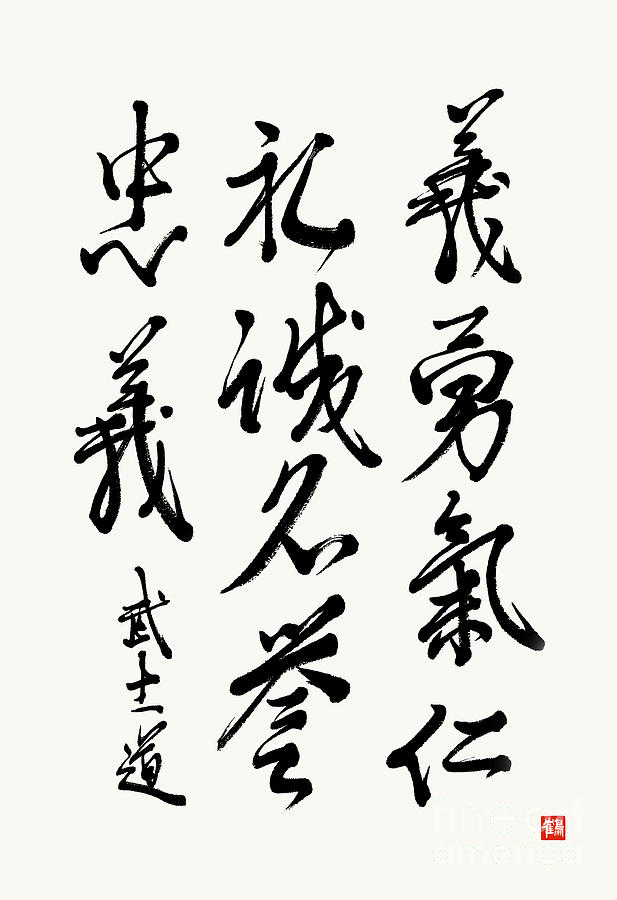 義勇氣仁
礼誠名誉
忠義
武士道
鶴
fine art
america